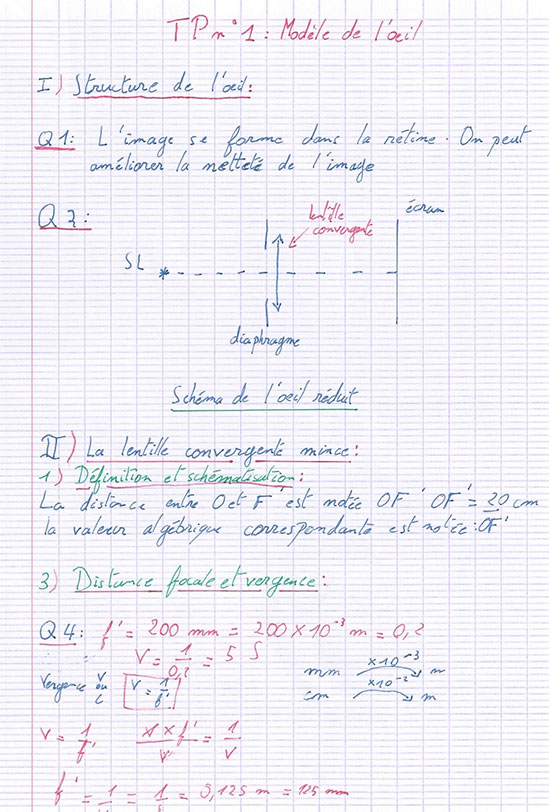 TP n°1 : Modèle de l'œil
I) Structure de l'œil :
Q1: L'image se forme dans la rétine. On peut
améliorer la netteté de l'image
Q2:
lentille
convergente
écran
SL
diaphragme
Schéma de l'œil réduit
II) La lentille convergente mince :
1) Définition et schématisation :
La distance entre O et F' est notée OF' OF' = 20 cm
la valeur algébrique correspondante est notée : OF'
3) Distance focale et vergence :
Q4: f' = 200 mm = 200 × 10⁻³ m = 0,2
V = 1/0,2 = 5 δ
Vergence V ou C V = 1/f'
mm ×10⁻³ m
cm ×10⁻² m
V = 1/f' 1 × f'/V = 1/V
f' = 1/ = 1/ = 0,125 m = 125 mm